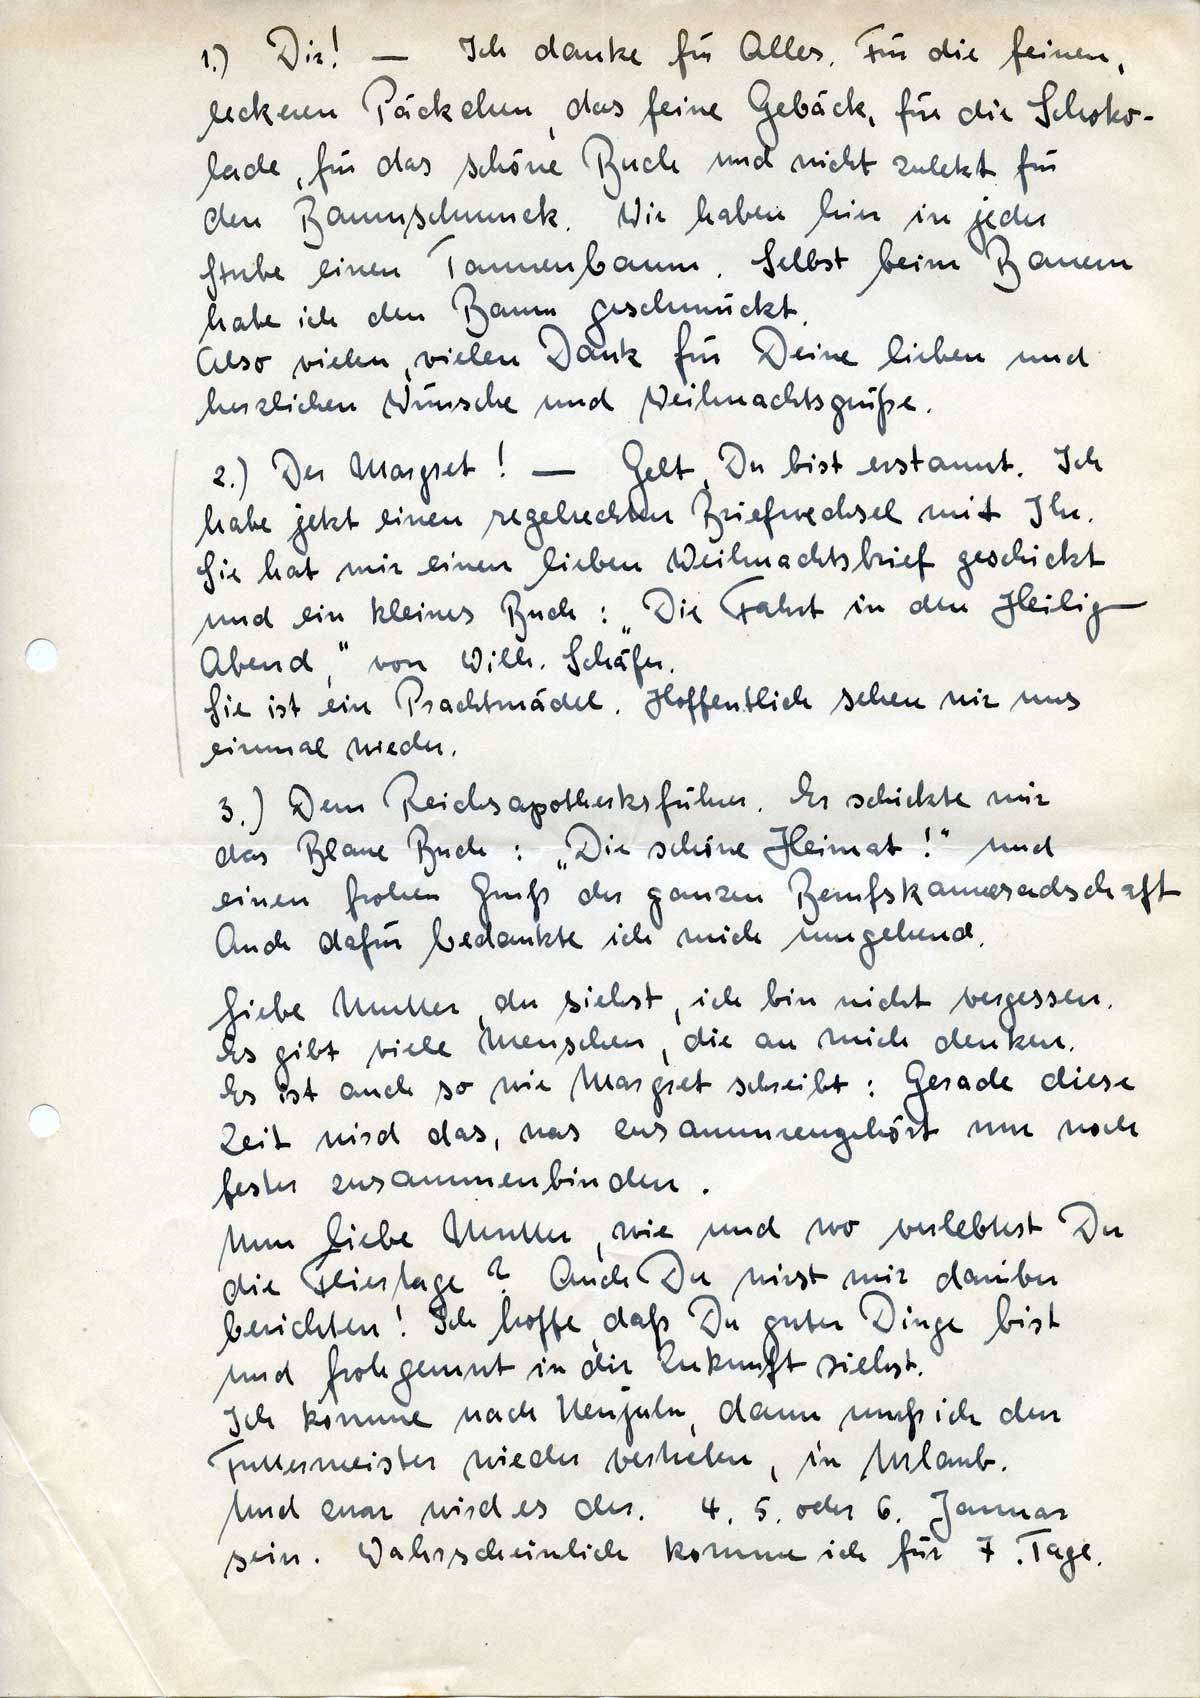 1.) Dir! — Ich danke für Alles. Für die feinen,
leckeren Päckchen, das feine Gebäck, für die Schoko-
lade, für das schöne Buch und nicht zuletzt für
den Baumschmuck. Wir haben hier in jeder
Stube einen Tannenbaum. Selbst beim Bauern
habe ich den Baum geschmückt.
Also vielen, vielen Dank für Deine lieben und
herzlichen Wünsche und Weihnachtsgrüße.
2.) Der Margret! — Gelt, Du bist erstaunt. Ich
habe jetzt einen regelrechten Briefwechsel mit Ihr.
Sie hat mir einen lieben Weihnachtsbrief geschickt
und ein kleines Buch: „Die Fahrt in den Heilig
Abend," von Wilh. Schäfer.
Sie ist ein Prachtmädel. Hoffentlich sehen wir uns
einmal wieder.
3.) Dem Reichsapothekerführer. Er schickte mir
das Blaue Buch: „Die schöne Heimat!" und
einen frohen Gruß der ganzen Berufskameradschaft
Auch dafür bedankte ich mich umgehend.
Liebe Mutter, du siehst, ich bin nicht vergessen.
Es gibt viele Menschen, die an mich denken.
Es ist auch so wie Margret schreibt: Gerade diese
Zeit wird das, was zusammengehört nur noch
fester zusammenbinden.
Nun liebe Mutter, wie und wo verlebtest Du
die Feiertage? Auch Du wirst mir darüber
berichten! Ich hoffe, daß Du guter Dinge bist
und frohgemut in die Zukunft siehst.
Ich komme nach Neujahr, dann muß ich den
Futtermeister wieder vertreten, in Urlaub.
Und zwar wird es der. 4. 5. oder 6. Januar
sein. Wahrscheinlich komme ich für 7. Tage.